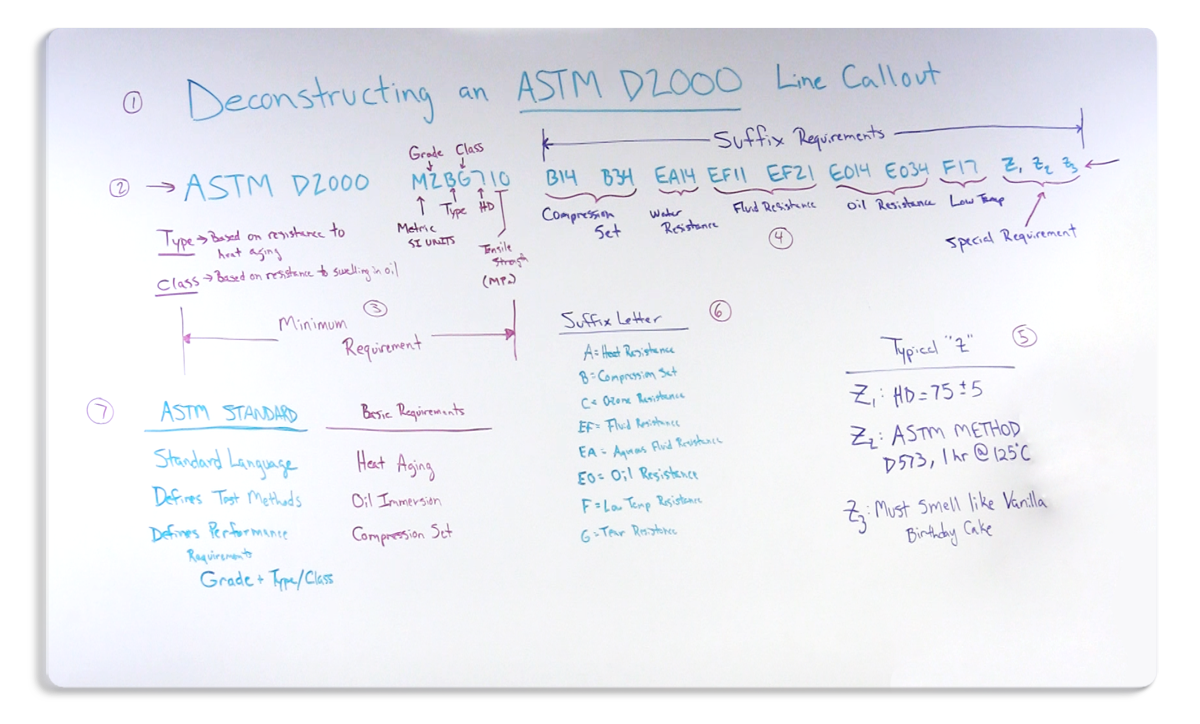 ① Deconstructing an ASTM D2000 Line Callout
Suffix Requirements
Grade Class
② → ASTM D2000 M2BG710 B14 B34 EA14 EF11 EF21 EO14 EO34 F17 Z₁ Z₂ Z₃
Type HD
Metric
SI UNITS
Tensile
Strength
(MPa)
Compression
Set
Water
Resistance
Fluid Resistance
Oil Resistance
Low Temp
④
Special Requirement
Type → Based on resistance to
heat aging
Class → Based on resistance to swelling in oil
③
Minimum
Requirement
Suffix Letter ⑥
A = Heat Resistance
B = Compression Set
C = Ozone Resistance
EF = Fluid Resistance
EA = Aqueous Fluid Resistance
EO = Oil Resistance
F = Low Temp Resistance
G = Tear Resistance
Typical "Z" ⑤
Z₁: HD = 75 ± 5
Z₂: ASTM METHOD
D573, 1 hr @ 125°C
Z₃: Must Smell like Vanilla
Birthday Cake
⑦ ASTM STANDARD
Standard Language
Defines Test Methods
Defines Performance
Requirements
Grade + Type/Class
Basic Requirements
Heat Aging
Oil Immersion
Compression Set